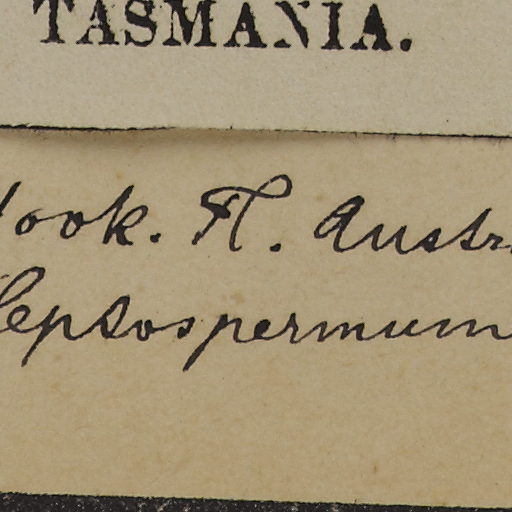 TASMANIA.
Hook. Fl. Austr.
Leptospermum